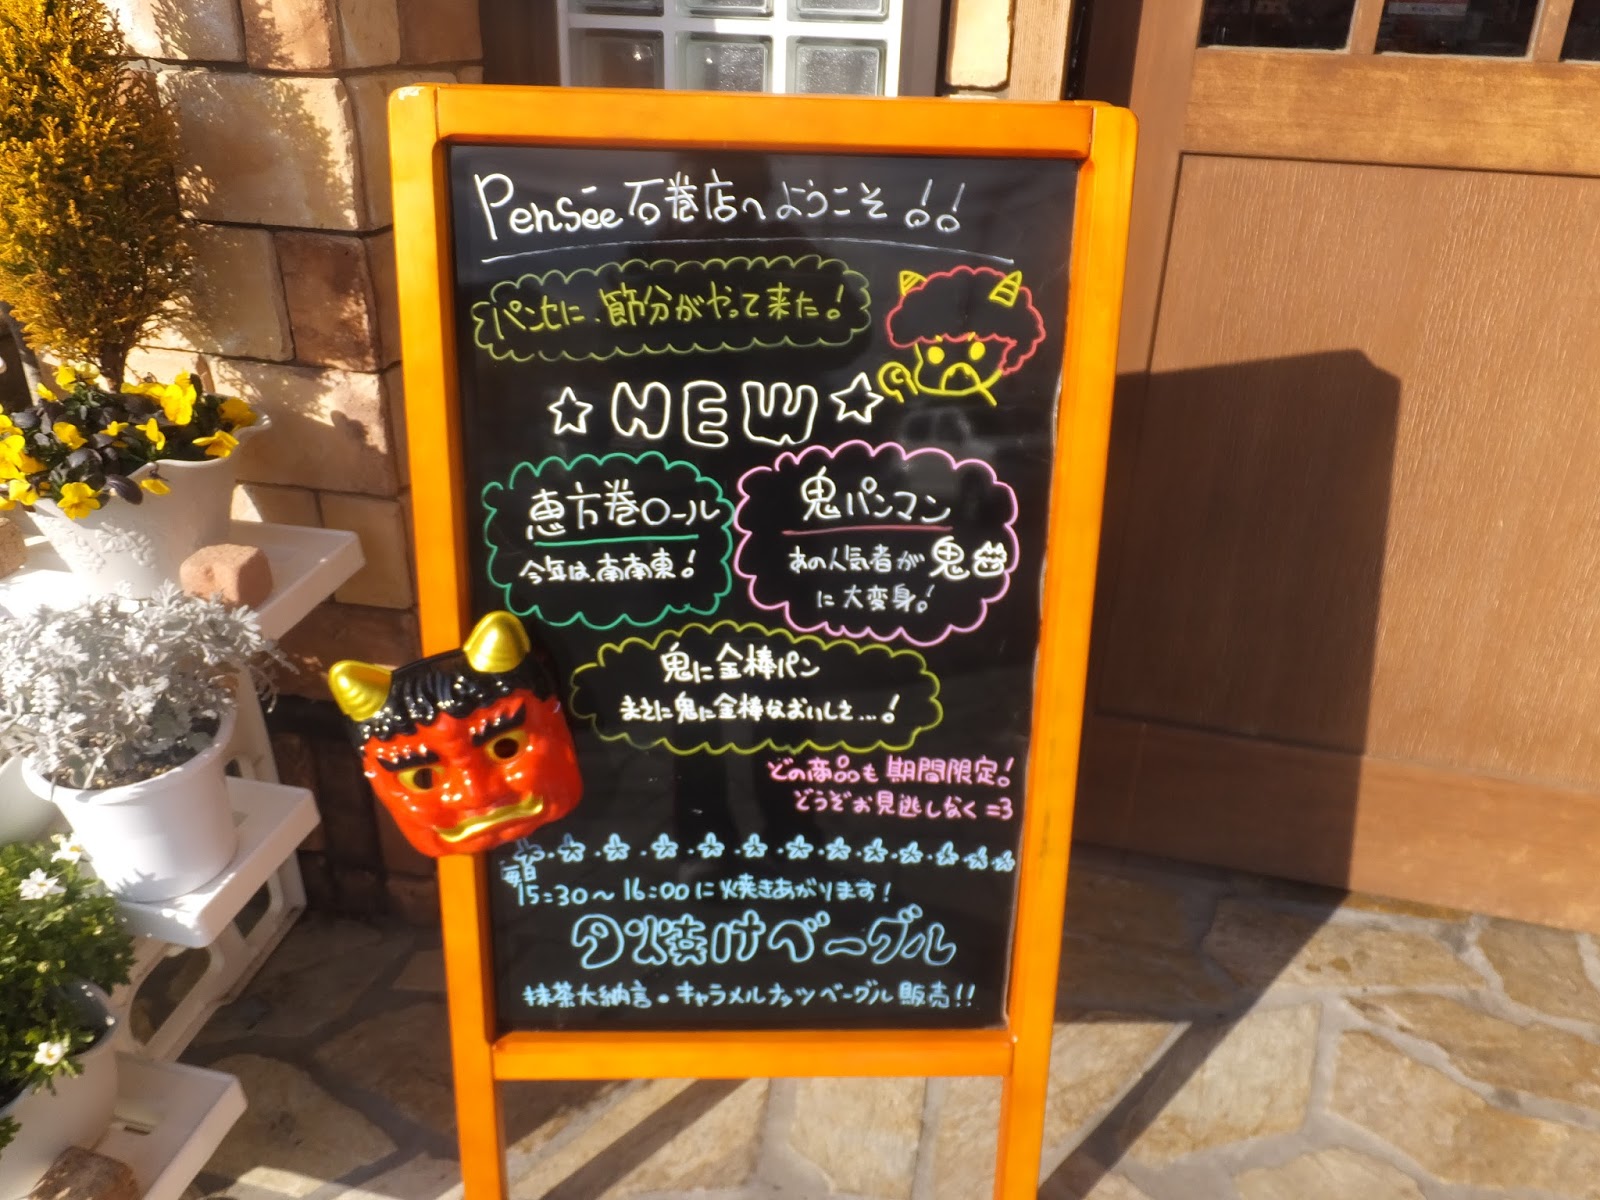 Pensée石巻店へようこそ!!
パンセに、節分がやって来た!
☆NEW☆
恵方巻ロール
今年は、南南東!
鬼パンマン
あの人気者が鬼
に大変身!
鬼に金棒パン
まさに鬼に金棒なおいしさ…!
どの商品も期間限定!
どうぞお見逃しなく=3
毎日
15:30～16:00に焼きあがります!
夕焼けベーグル
抹茶大納言・キャラメルナッツベーグル販売!!